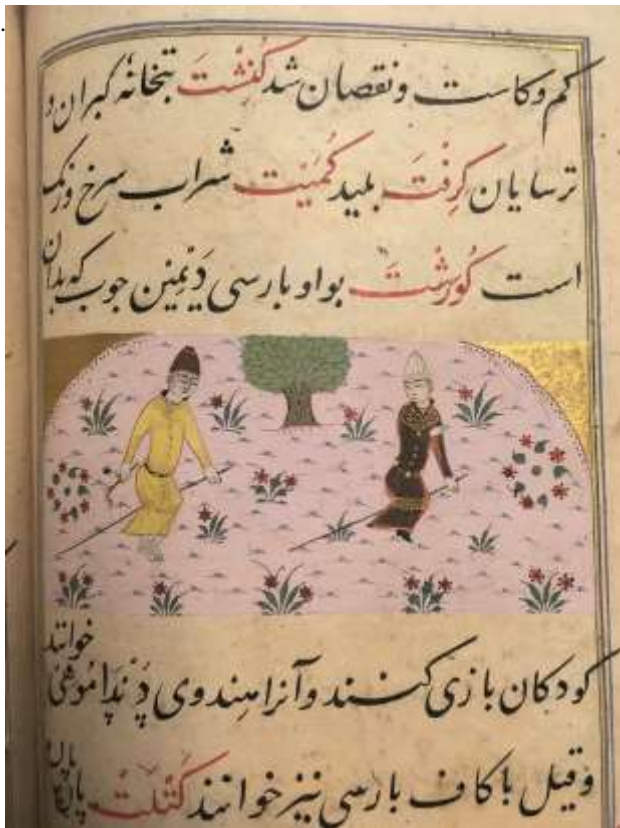 کم و کاست و نقصان شد کُنِشْتَ بتخانهٔ کبران و
ترسایان کِرِفْتَ بلید کُمَیْت شراب سرخ و رنک
است کُورِشْتَ بواو بارسی دَیْمِیْن جوب که بدان
کودکان بازی کنند و آنرا هندوی دَنْدَا مُوهَیْ خوانند
و قیل با کاف بارسی نیز خوانند کُتْلَتْ